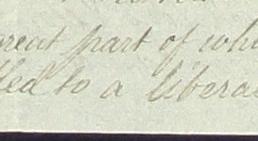 great part of whi
led to a libera